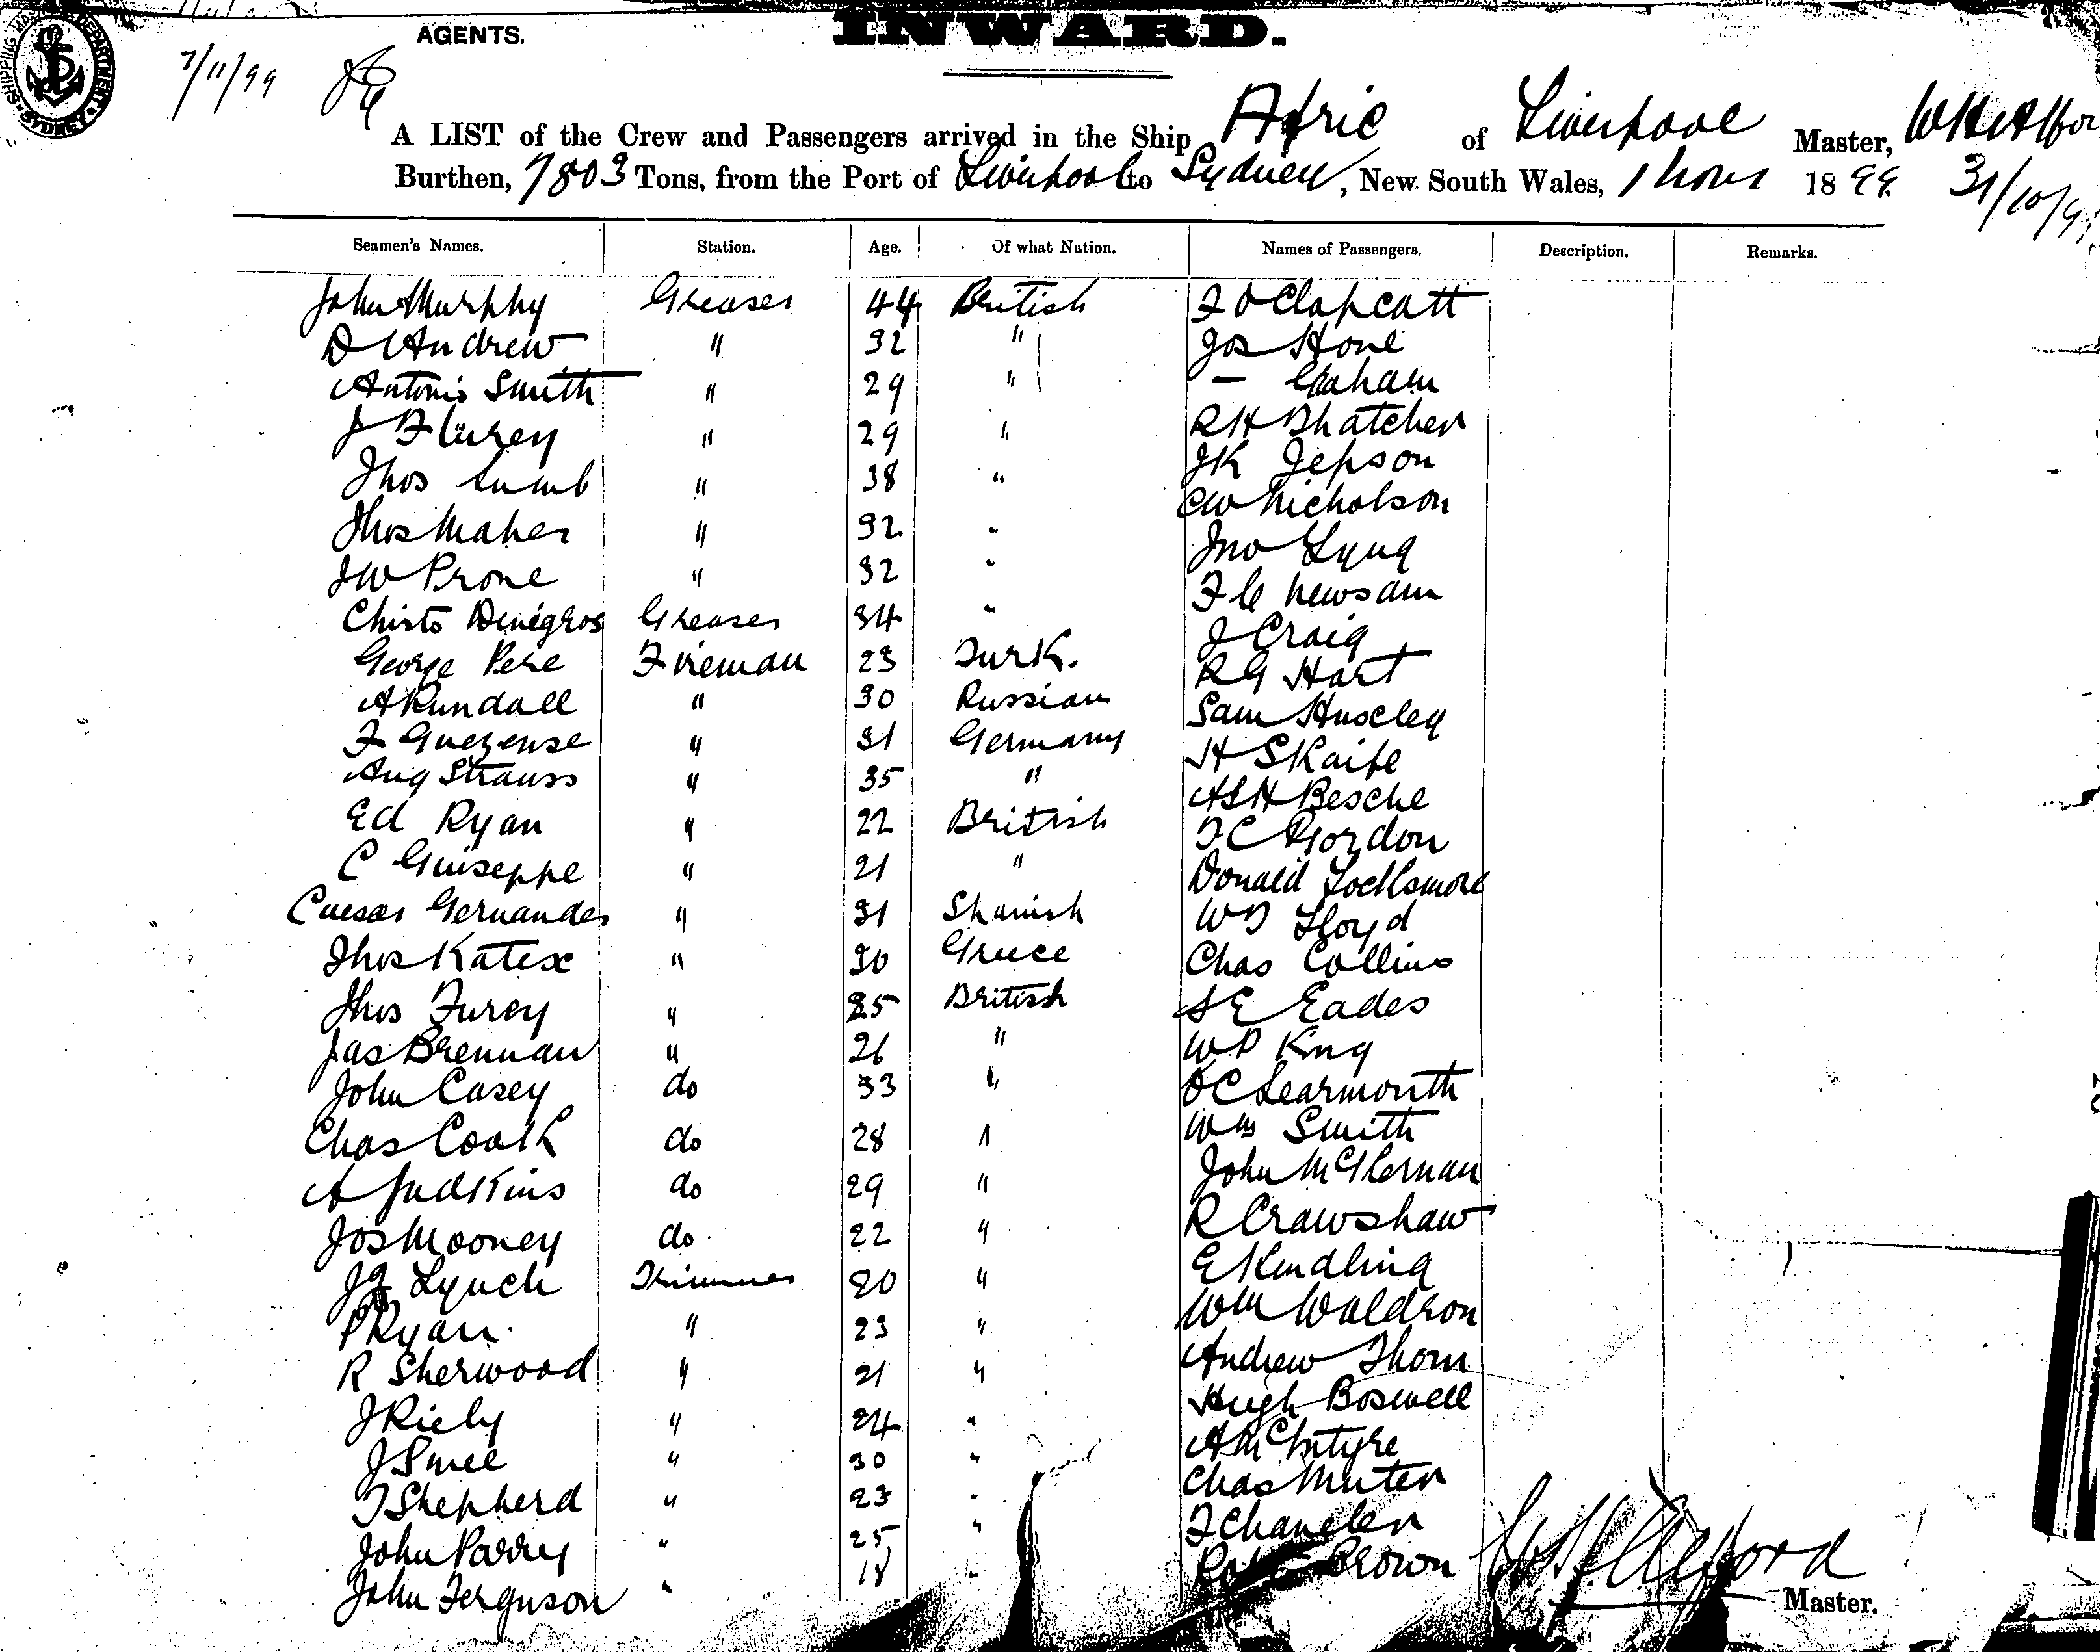 AGENTS.
INWARD.
SHIPPING DEPARTMENT SYDNEY
7/11/99
A LIST of the Crew and Passengers arrived in the Ship Afric of Liverpool Master,
Burthen, 7803 Tons, from the Port of Liverpool to Sydney, New South Wales, 1 Nov 1899 31/10/9
Seamen's Names. Station. Age. Of what Nation. Names of Passengers. Description. Remarks.
John Murphy Greaser 44 British F O Clapcatt
D Andrew " 32 " Jos Hone
Antonio Smith " 29 " — Graham
J Flurey " 29 " R H Thatcher
Thos Lumb " 38 " J K Jepson
Thos Maher " 32 " C W Nicholson
J W Prone " 32 " Jno Lyng
Christo Denegros Greaser 34 " F C Newsam
George Pere Fireman 23 Turk. J Craig
A Rundall " 30 Russian R G Hart
F Guezense " 31 Germany Sam Huxley
Aug Strauss " 35 " H Skaife
Ed Ryan " 22 British A S H Besche
C Guiseppe " 21 " F C Gordon
Caesar Gernandes " 31 Spanish Donald
Thos Katex " 30 Greece W T Lloyd
Thos Furey " 25 British Chas Collins
Jas Brennan " 26 " S E Eades
John Casey do 33 " W P King
Chas Cook do 28 " O C Learmonth
A Judkins do 29 " Wm Smith
Jos Mooney do 22 " John McKernan
J J Lynch Trimmer 20 " R Crawshaw
P Ryan " 23 " E Kindling
R Sherwood " 21 " Wm Waldron
J Riely " 24 " Andrew Thom
J Smee " 30 " Hugh Boswell
T Shepherd " 23 " A McIntyre
John Parry " 25 " Chas Muter
John Ferguson " 18 " F Chandler
Brown
Master.